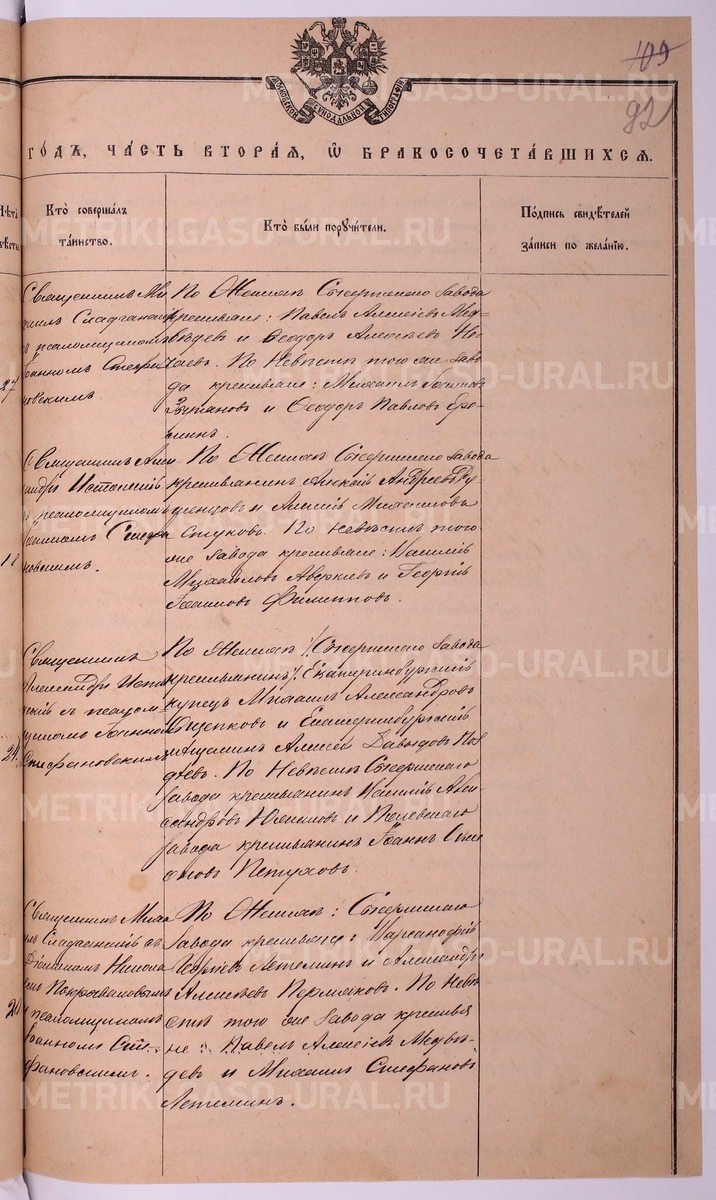 109
92
МОСКОВСКОЙ СѴНОДАЛЬНОЙ ТИПОГРАФІИ
ГО́ДЪ, ЧА́СТЬ ВТОРА́Я, Ѿ БРАКОСОЧЕТА́ВШИХСЯ.
Кто̀ соверша́лъ
та́инство.
Кто̀ бы́ли поручи́тели.
По́дпись свидѣ́телей
за́писи по жела́нію.
27
Священникъ Ми
хаилъ
псаломщикомъ
Іоанномъ Стефа
новскимъ.
По Женихѣ: Сысертскаго завода
крестьяне: Павелъ Алексѣевъ Мед-
вѣдевъ и Ѳеодоръ Алексѣевъ Не-
чаевъ. По Невѣстѣ: того же заво
да крестьяне: Михаилъ
и Ѳеодоръ Павловъ
18
Священникъ Алек
сандръ
псаломщикомъ
Іоанномъ Стефа
новскимъ.
По Женихѣ: Сысертскаго завода
крестьянинъ Алексѣй Андреевъ
и Алексѣй Михаиловъ
По невѣстѣ: того
же завода крестьяне: Василій
Михайловъ Аверкіевъ и Георгій
Іоанновъ Филипповъ.
24
Священникъ
Александръ
съ псалом
щикомъ Іоанномъ
Стефановскимъ
По Женихѣ: Сысертскаго завода
крестьянинъ/ Екатеринбургскій
купецъ Михаилъ Александровъ
и Екатеринбургскій
мѣщанинъ Алексѣй Давыдовъ
По Невѣстѣ: Сысертскаго
завода крестьянинъ Василій Алек
сандровъ и Полевскаго
завода крестьянинъ Іоаннъ
Пѣтуховъ.
20
Священникъ Миха
илъ съ
Діакономъ Никола
емъ Покрываловымъ
и псаломщикомъ
Іоанномъ Сте-
фановскимъ.
По Женихѣ: Сысертскаго
завода крестьяне: Парсанофій
Георгіевъ Летеминъ и Александръ
Алексѣевъ Пермяковъ. По Невѣ
стѣ: того же завода крестья
не: Павелъ Алексѣевъ Медвѣ-
девъ и Михаилъ Стефановъ
Летеминъ.
METRIKI.GASO-URAL.RU